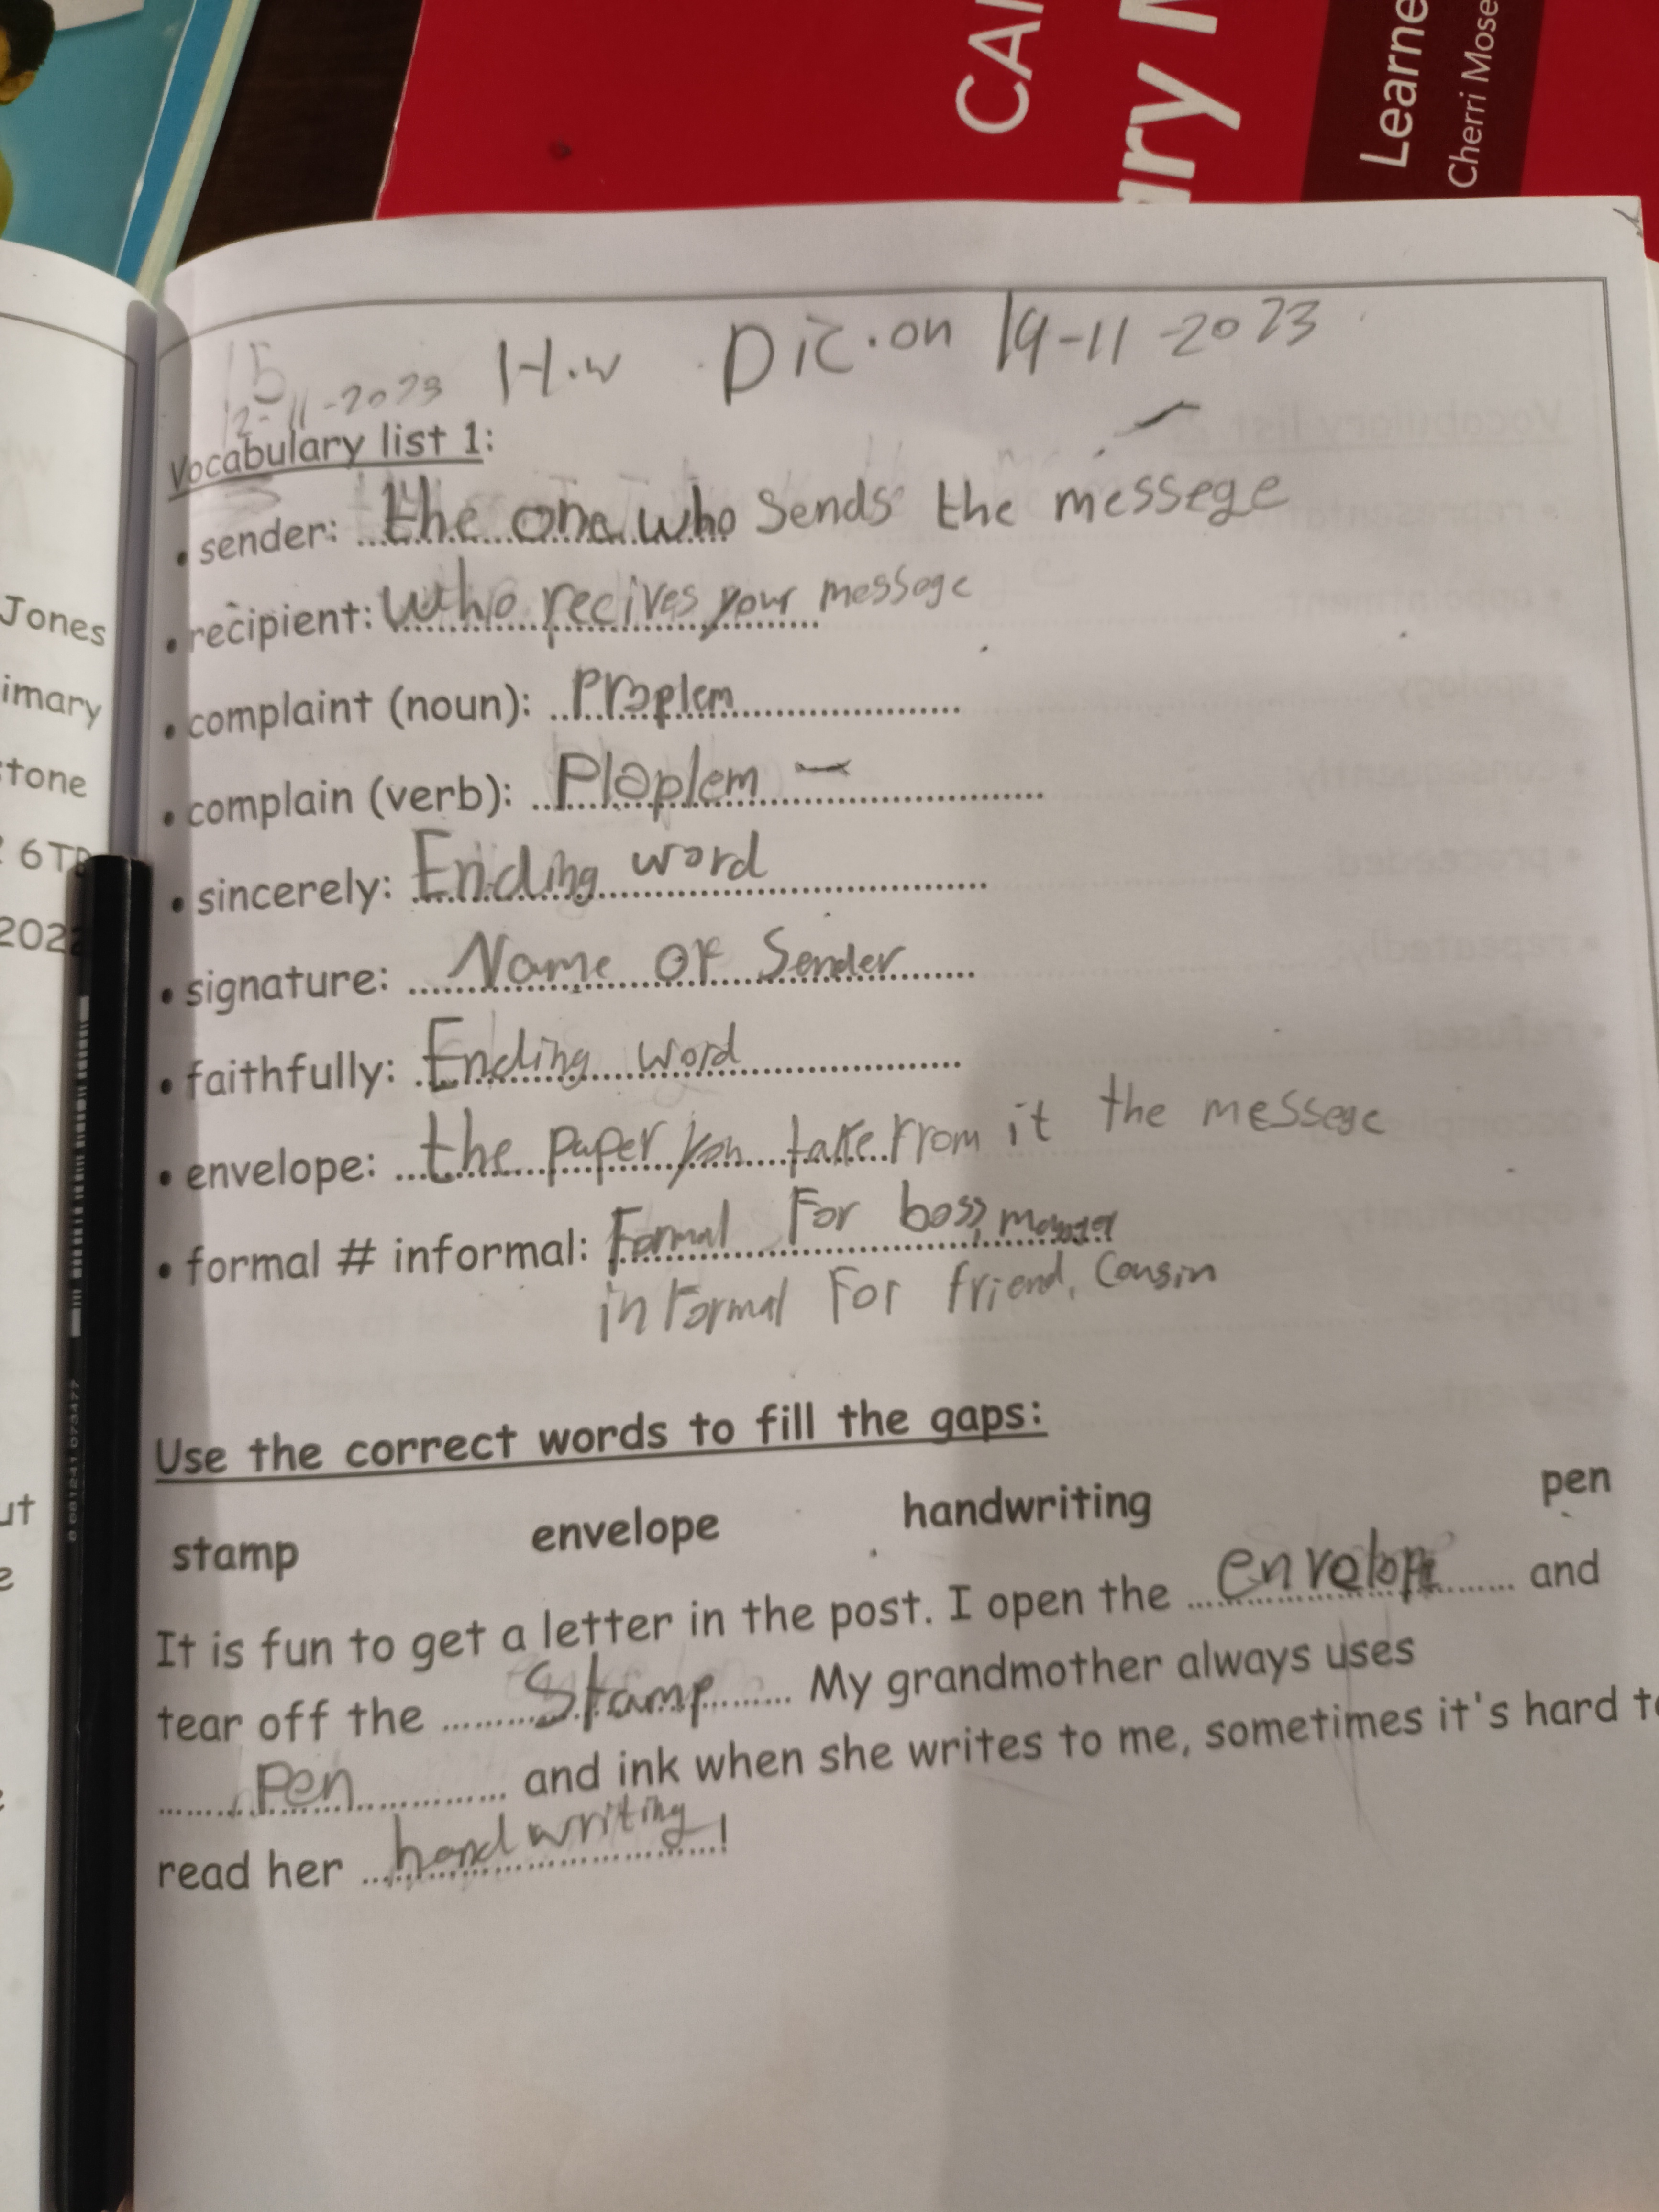 CAI
ary M
Learne
Cherri Mose
Jones
imary
tone
6TB
202
ut
e
15
12-11-2023 H.w Dic.on 19-11-2023
Vocabulary list 1:
• sender: the one who sends the messege
• recipient: who recives your messege
• complaint (noun): Proplem
• complain (verb): Ploplem
• sincerely: Ending word
• signature: Name of Sender
• faithfully: Ending word
• envelope: the paper you take from it the messege
• formal # informal: Formal For boss, manager
informal For friend, Cousin
Use the correct words to fill the gaps:
stamp envelope handwriting pen
It is fun to get a letter in the post. I open the envelope and
tear off the Stamp My grandmother always uses
Pen and ink when she writes to me, sometimes it's hard to
read her handwriting!